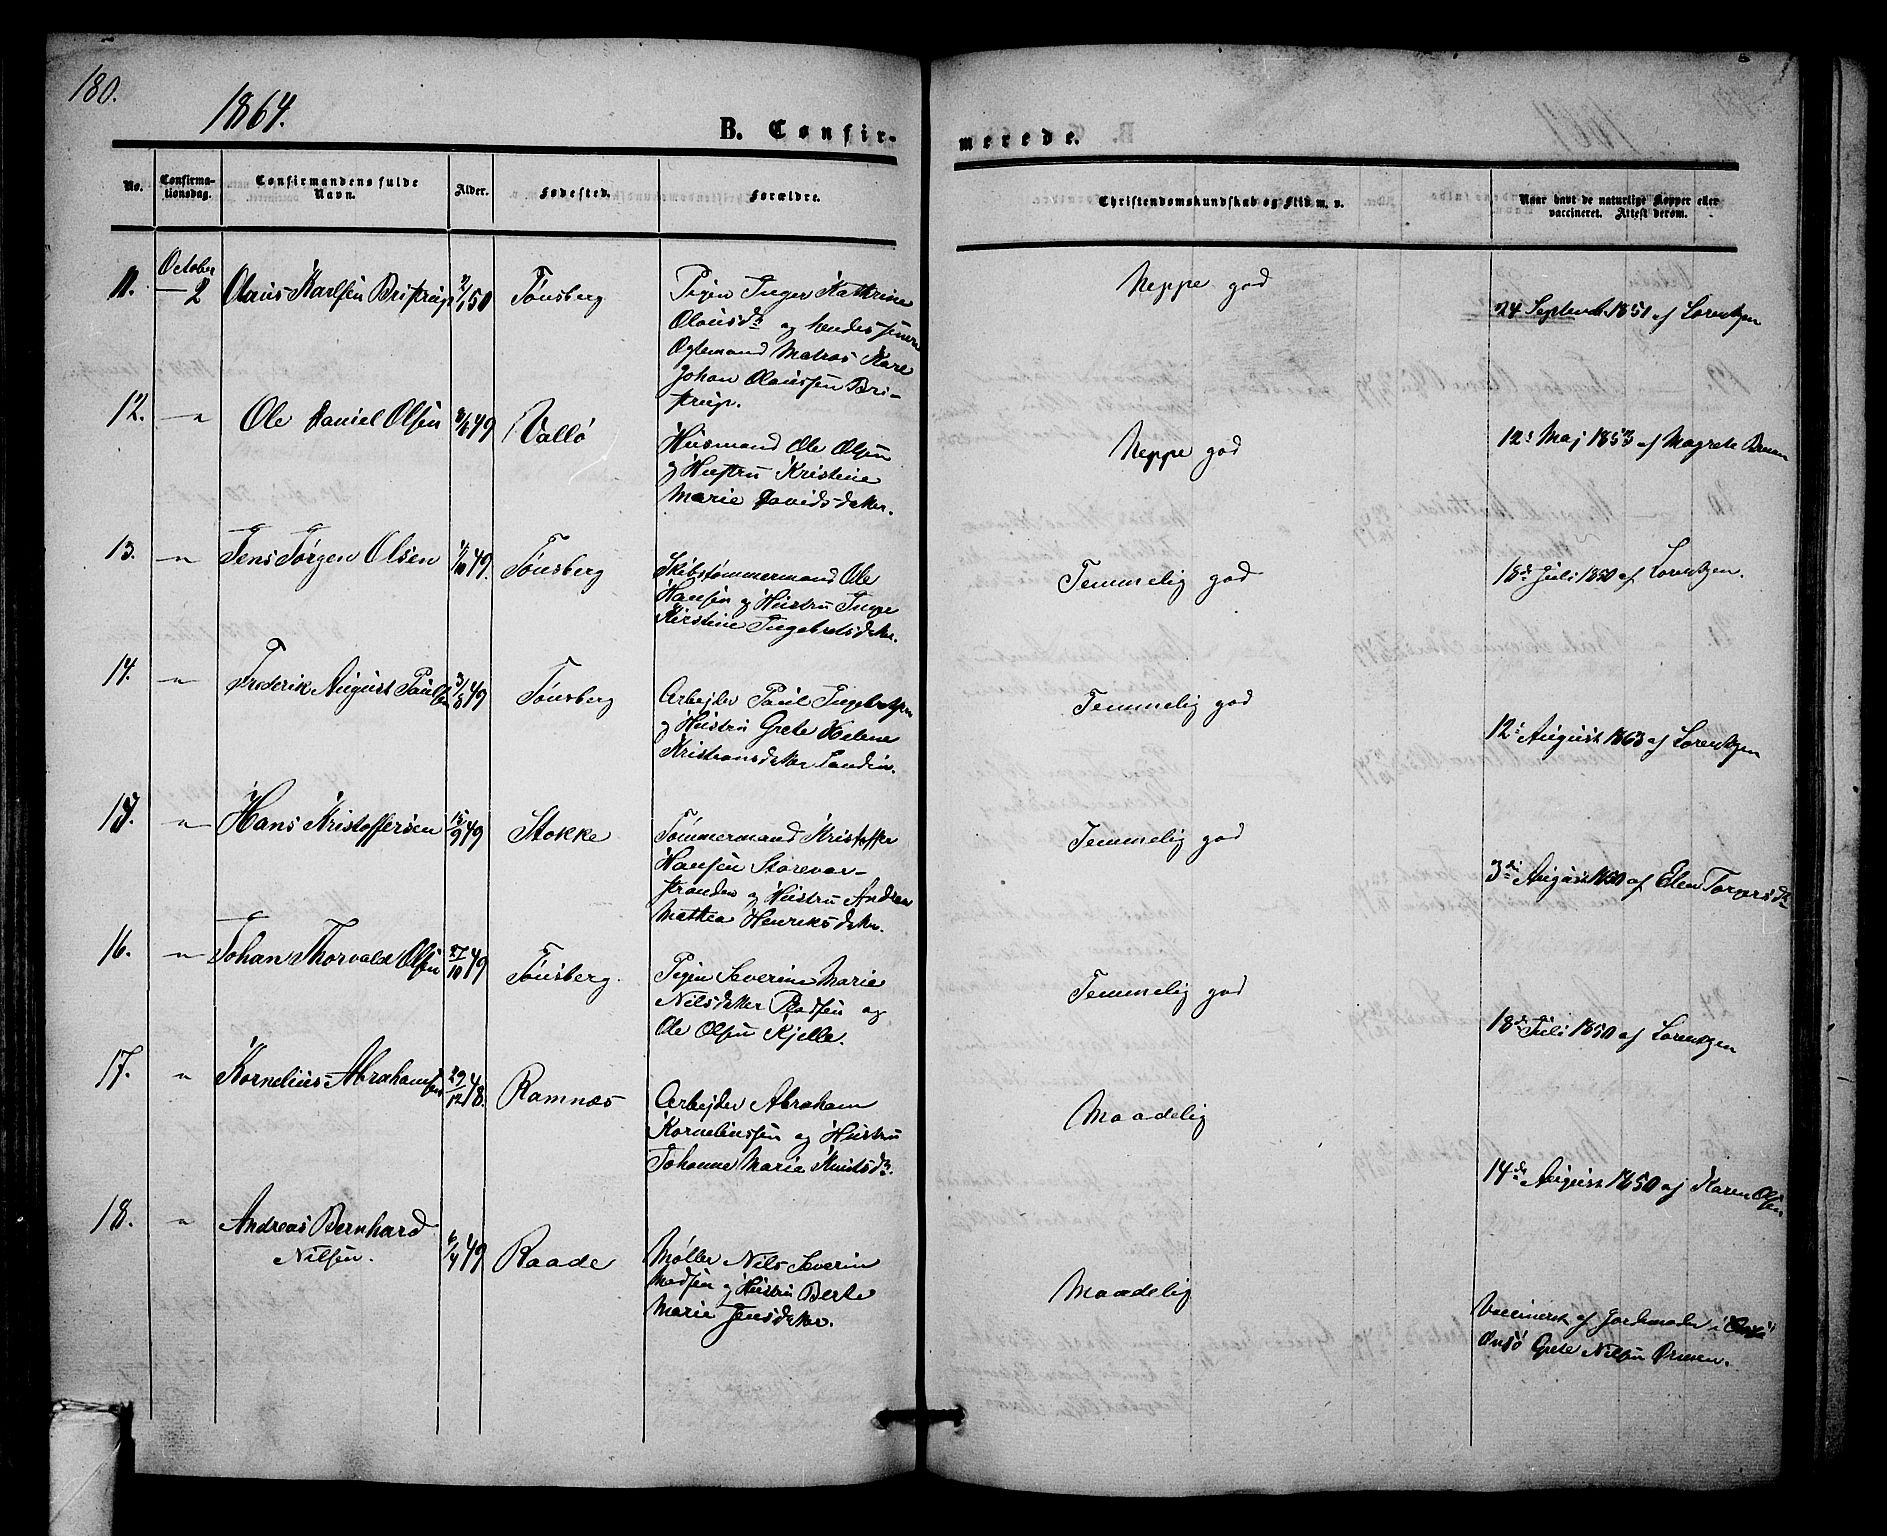 180.
1864.
B. Confir-
merede.
No.
Confirma-
tionsdag.
Confirmandens fulde
Navn.
Alder.
Fødested.
Forældre.
Christendomskundskab og Flid m. v.
Naar havt de naturlige Kopper eller
vaccineret. Attest derom.
11.
October
2
Olaus Karlsen Bristrup
50
Tønsberg
Pigen Inger Kathrine
Olausdr og hendes
Egtemand Matros Karl
Johan Olaussen Bri-
strup.
Neppe god
24 Septemb. 1851 af Lorentzen
12.
"
Ole Daniel Olsen
49
Vallø
Husmand Ole Olsen
og Hustru Kristine
Marie Davidsdatter.
Neppe god
12te Maj 1853 af Magrete Bruun
13.
"
Jens Jørgen Olsen
4/10 49.
Tønsberg
Skibstømmermand Ole
Hansen og Hustru Inge
Kirstine Ingebretsdatter.
Temmelig god
18de Juli 1850 af Lorentzen.
14.
"
Frederik August Paulsen
3/8 49
Tønsberg
Arbejder Paul Ingebretsen
og Hustru Grete Helene
Kristiansdatter Landin.
Temmelig god
12te August 1863 af Lorentzen
15.
"
Hans Kristoffersen
15/9 49
Stokke
Tømmermand Kristoffer
Hansen Storevar-
stranden og Hustru Andrea
Mathea Henriksdatter.
Temmelig god
3die August 1850 af Elen Torgersdr
16.
"
Johan Thorvald Olsen
27/10 49
Tønsberg.
Pigen Severine Marie
Nilsdatter Pladsen og
Ole Olsen Kjelle.
Temmelig god
18de Juli 1850 af Lorentzen
17.
"
Kornelius Abrahamsen
29/12 48.
Ramnæs
Arbejder Abraham
Korneliussen og Hustru
Johanne Marie Knutsdr.
Maadelig
14de August 1850 af Karen Olsen
18.
"
Andreas Bernhard
Nilsen.
6/4 49
Raade
Møller Nils Severin
Madsen og Hustru Berte
Marie Jensdatter.
Maadelig
Vaccineret af Jordemoder i
Onsö Grete Nilsen Ørmen.